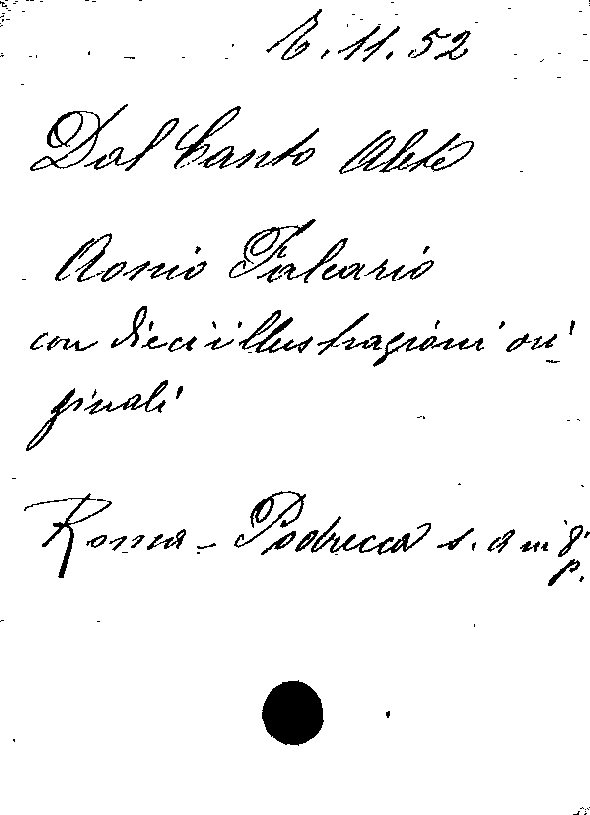 E. 11. 52
Dal Canto Alete
Aonio Paleario
con dieci illustrazioni ori
ginali
Roma - Podrecca s. a in 8°
p.